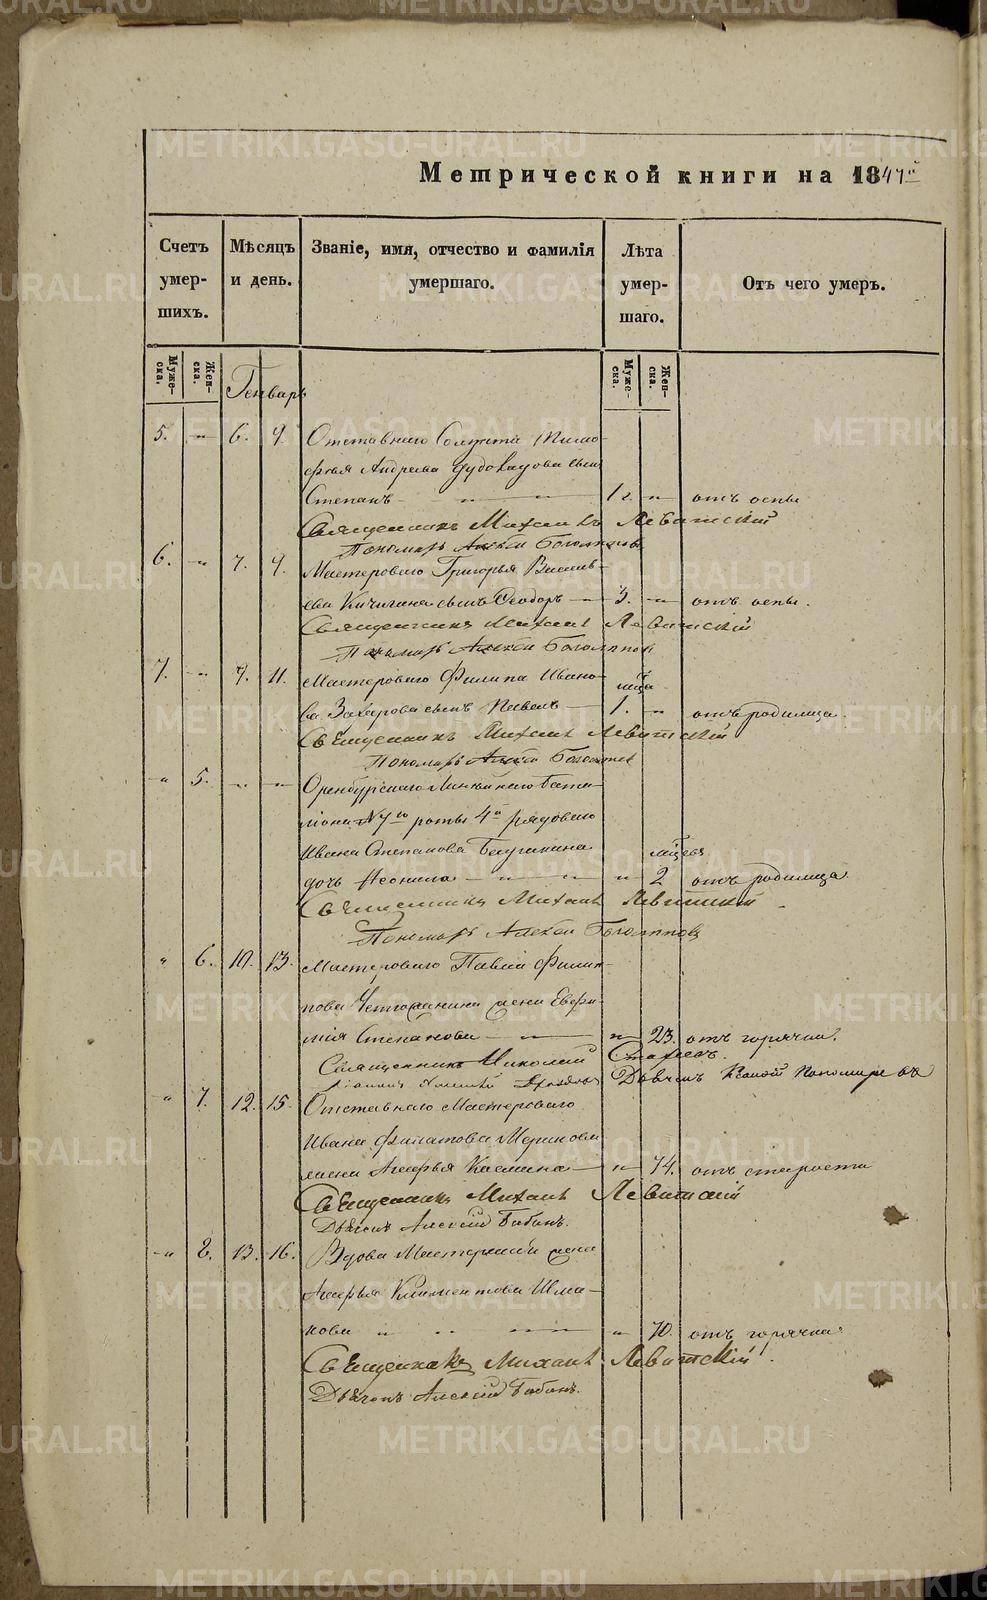 Метрической книги на 1847й
Счетъ умершихъ.
Мѣсяцъ и день.
Званіе, имя, отчество и фамилія умершаго.
Лѣта умершаго.
Отъ чего умеръ.
Мужеска.
Женска.
Генварь
Мужеска.
Женска.
5. - 6. 9. Отставнаго Солдата Тимо-
фѣя Андреева сынъ
Степанъ 1 г. - отъ оспы
Священникъ Михаилъ Левитскій
Пономарь Алексѣй Боголѣповъ
6. - 7. 9. Мастероваго Григорья Василь-
ева Кичигина сынъ Ѳеодоръ - 3. - отъ оспы.
Священникъ Михаилъ Левитскій
Пономарь Алексѣй Боголѣповъ
7. - 9. 11. Мастероваго Филипа Ивано-
ва Захарова сынъ Павелъ - 1. - отъ родимца.
Священникъ Михаилъ Левитскій
Пономарь Алексѣй Боголѣповъ
- 5. - - Оренбургскаго Линѣйнаго бата-
ліона роты 4й рядоваго
Ивана Степанова мѣсяц
дочь Неонила - 2 отъ родимца
Священникъ Михаилъ Левитскій
Пономарь Алексѣй Боголѣповъ
- 6. 10. 13. Мастероваго Павла Филип-
пова жена Евфи-
мія Степанова - 23. отъ горячки.
Священникъ Николай
- 7. 12. 15. Отставнаго Мастероваго
Ивана Филатова
жена Агафья Космина - 74. отъ старости
Священникъ Михаилъ Левитскій
Дьячекъ Алексѣй Бабинъ.
- 8. 13. 16. Вдова Мастерская жена
Агафья Климентова
кова - 70. отъ горячки.
Священникъ Михаилъ Левитскій
Дьячекъ Алексѣй Бабинъ.
METRIKI.GASO-URAL.RU